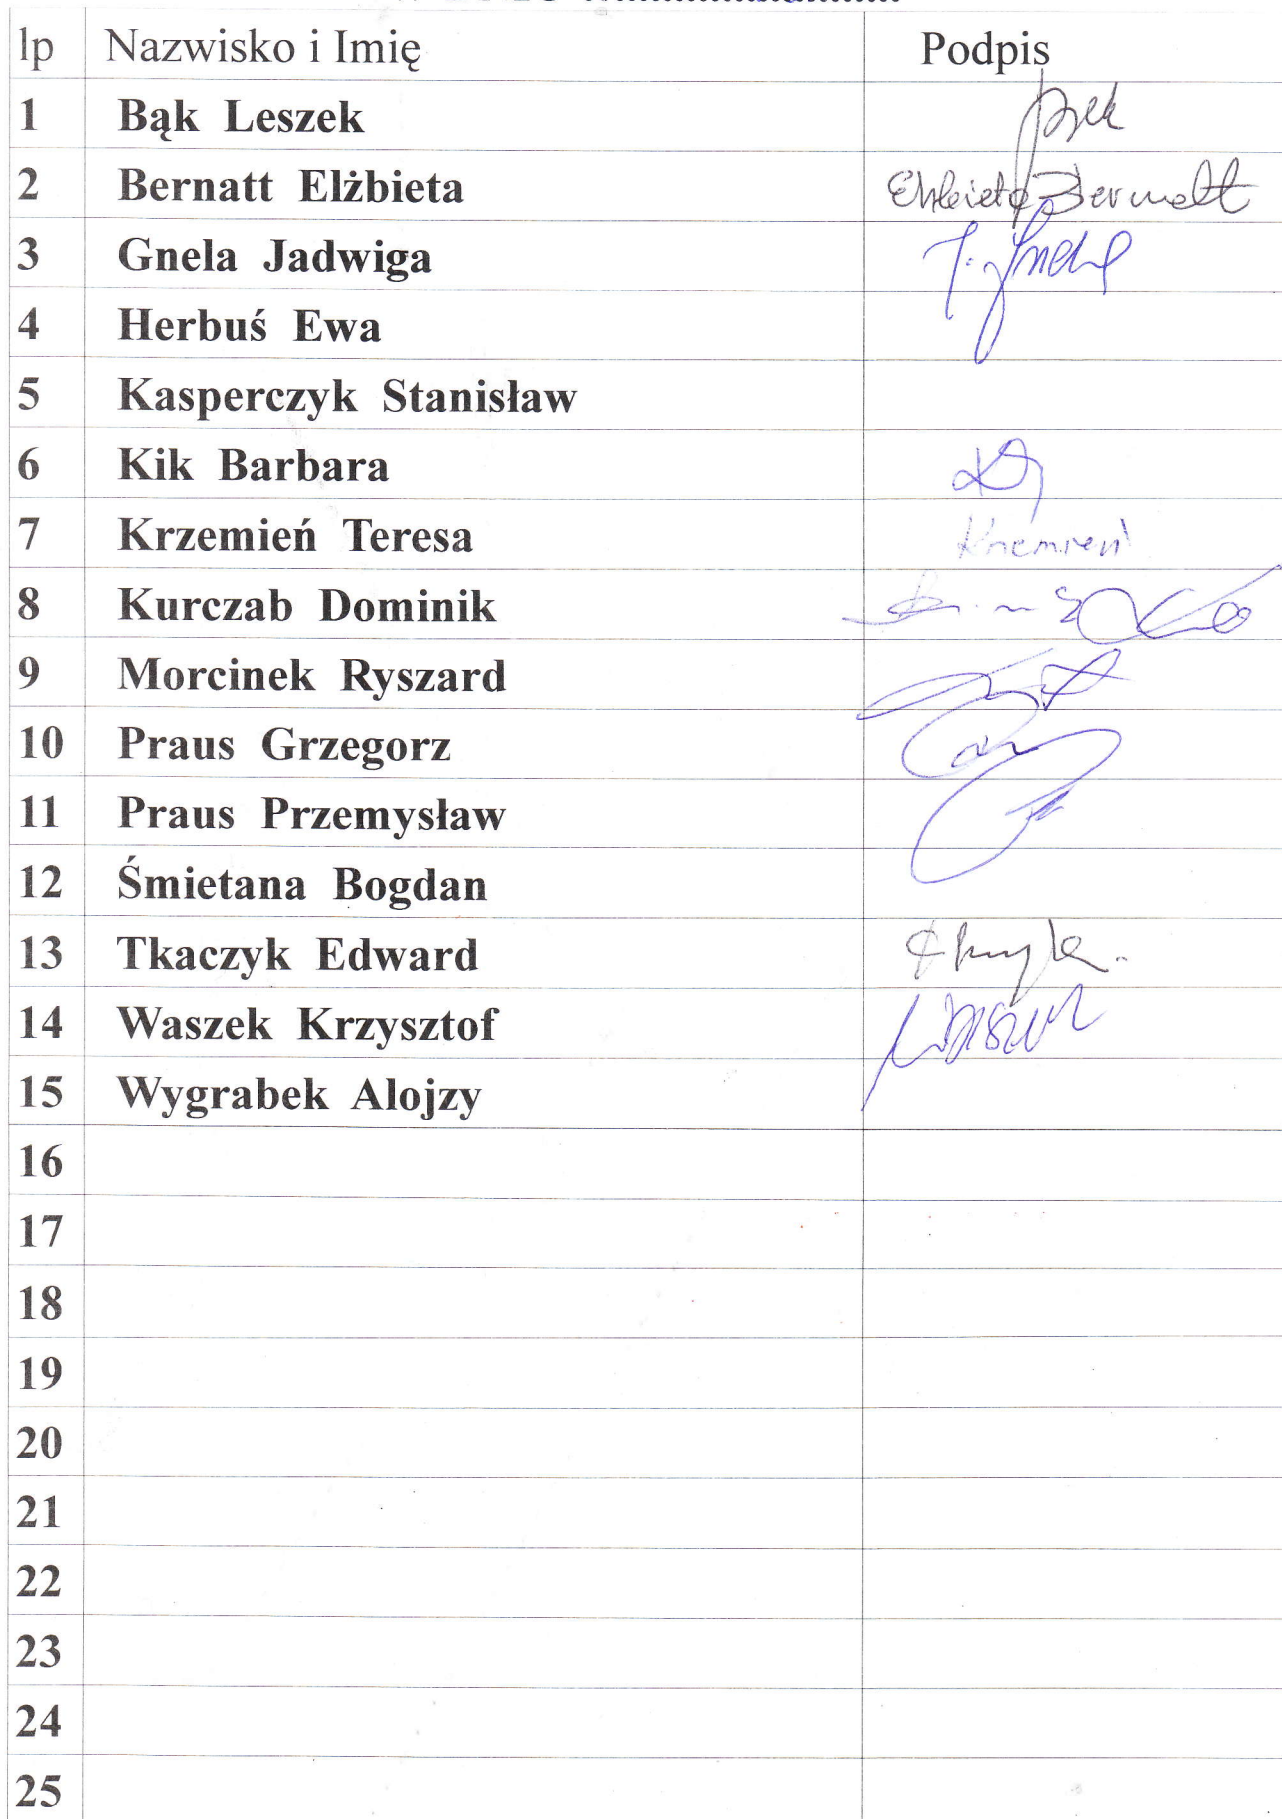 lp Nazwisko i Imię Podpis
1 Bąk Leszek
2 Bernatt Elżbieta Elżbieta Bernatt
3 Gnela Jadwiga J. Gnela
4 Herbuś Ewa
5 Kasperczyk Stanisław
6 Kik Barbara
7 Krzemień Teresa Krzemień
8 Kurczab Dominik
9 Morcinek Ryszard
10 Praus Grzegorz
11 Praus Przemysław
12 Śmietana Bogdan
13 Tkaczyk Edward
14 Waszek Krzysztof Waszek
15 Wygrabek Alojzy
16
17
18
19
20
21
22
23
24
25